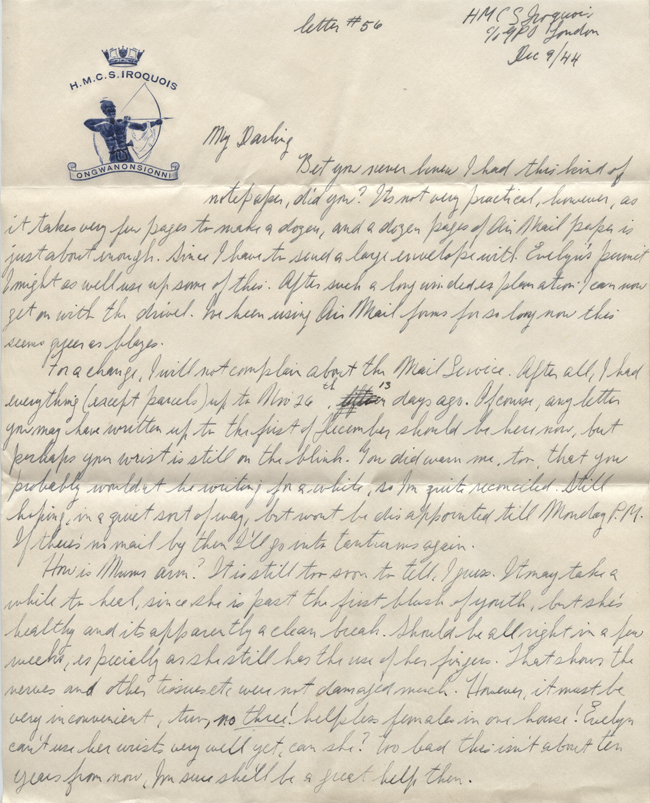 letter #56
HMCS Iroquois
c/o GPO London
Dec 9/44
H.M.C.S. IROQUOIS
ONGWANONSIONNI
My Darling
Bet you never knew I had this kind of
notepaper, did you? Its not very practical, however, as
it takes very few pages to make a dozen, and a dozen pages of Air Mail paper is
just about enough. Since I have to send a large envelope with Evelyn's permit
I might as well use up some of this. After such a long winded explanation I can now
get on with the drivel. I've been using Air Mail forms for so long now this
seems queer as blazes.
For a change, I will not complain about the Mail Service. After all, I had
everything (except parcels) up to Nov 26th, 13 days ago. Of course, any letter
you may have written up to the first of December should be here now, but
perhaps your wrist is still on the blink. You did warn me, too, that you
probably wouldn't be writing for a while, so I'm quite reconciled. Still
hoping, in a quiet sort of way, but wont be disappointed till Monday P.M.
If there's no mail by then I'll go into tantrums again.
How is Mums arm? It is still too soon to tell, I guess. It may take a
while to heal, since she is past the first blush of youth, but she's
healthy and its apparently a clean break. Should be all right in a few
weeks, especially as she still has the use of her fingers. That shows the
nerves and other tissues etc were not damaged much. However, it must be
very inconvenient, two, no three! helpless females in one house! Evelyn
can't use her wrists very well yet, can she? Too bad this isn't about ten
years from now, I'm sure she'll be a great help then.